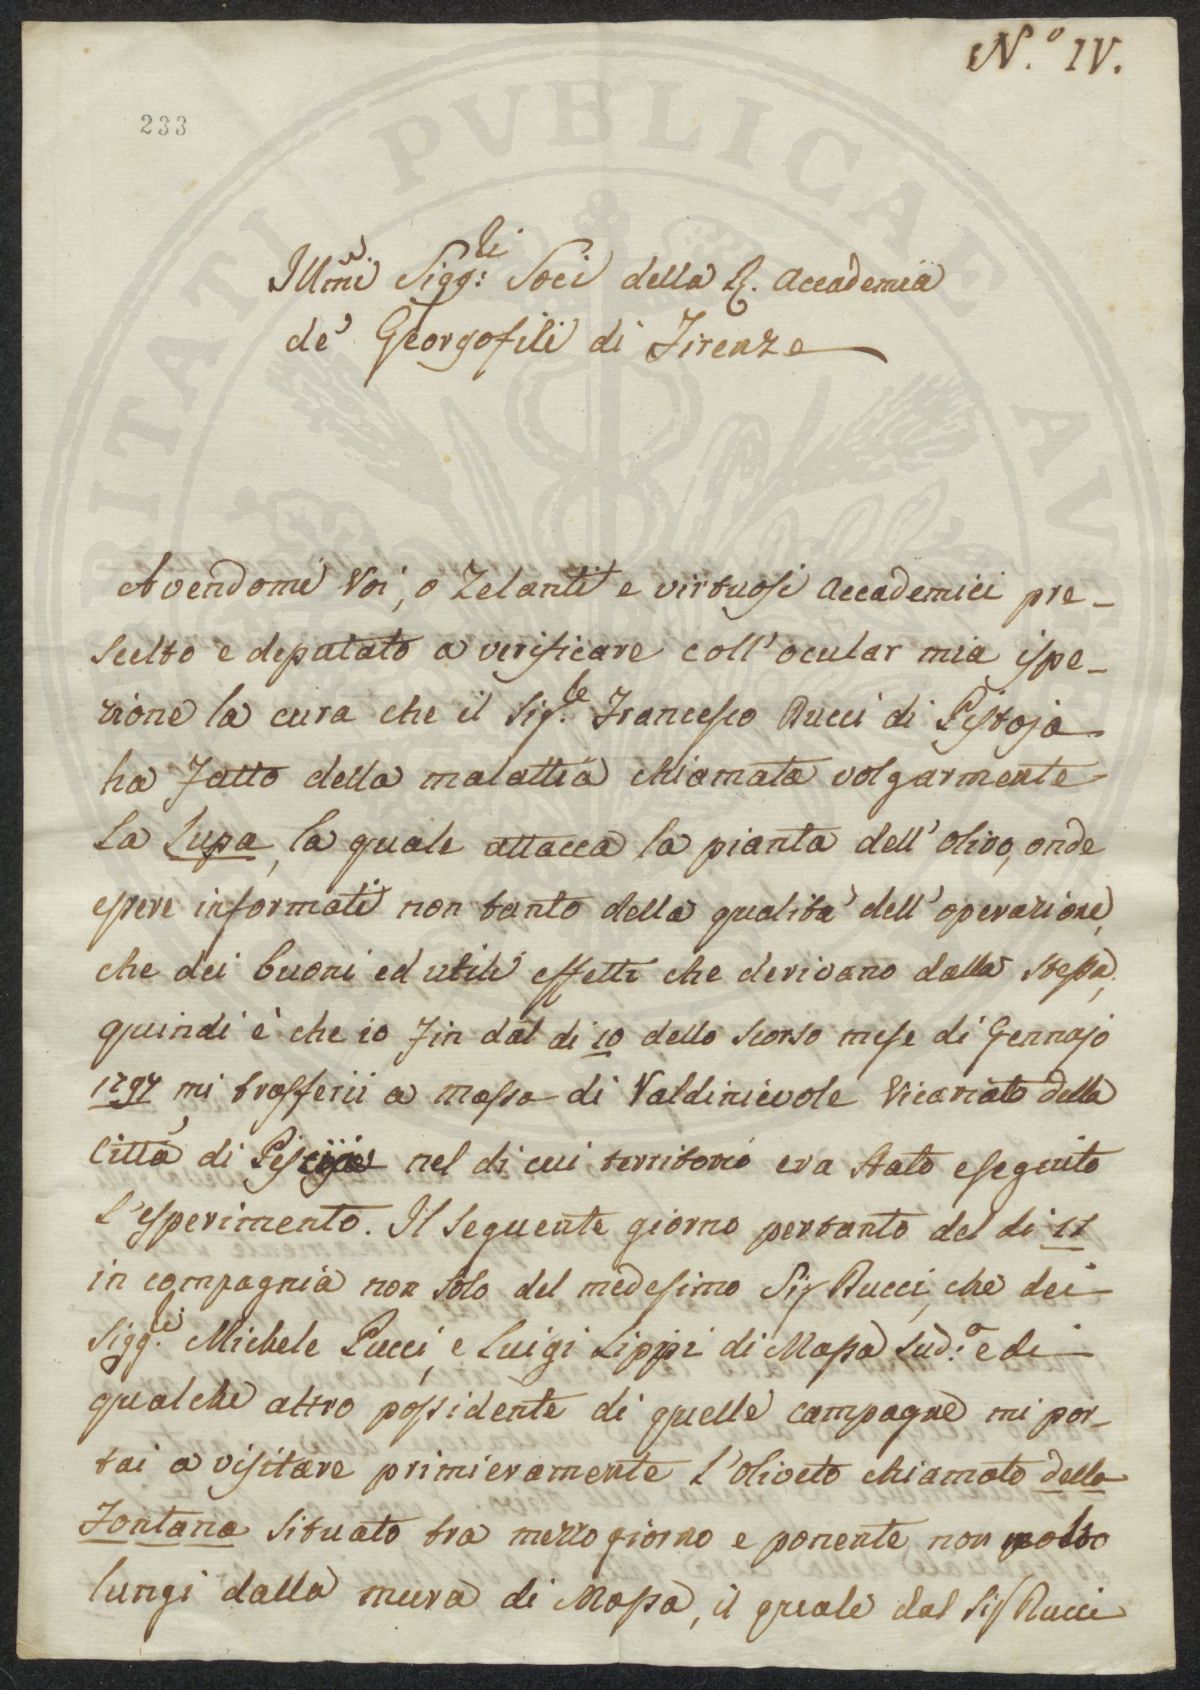 N.° IV.
233
PROSPERITATI PVBLICAE AVGENDAE
Ill.mi Sigg:ri Soci della R. Accademia
de' Georgofili di Firenze
Avendomi Voi, o Zelanti e virtuosi Accademici pre-
scelto e deputato a verificare coll'ocular mia ispe-
zione la cura che il Sig.re Francesco Bucci di Pistoja
ha fatto della malattia chiamata volgarmente
la Lupa, la quale attacca la pianta dell'olivo, onde
essere informati non tanto della qualità dell'operazione,
che dei buoni ed utili effetti che derivano dalla stessa,
quindi è che io fin dal dì 10 dello scorso mese di Gennajo
1797 mi trasferii a Massa di Valdinievole Vicariato della
Città di Pescia nel di cui territorio era stato eseguito
l'esperimento. Il seguente giorno pertanto del dì 11
in compagnia non solo del medesimo Sig Bucci, che dei
Sigg.ri Michele Pucci, e Luigi Lippi di Massa sud.a e di
qualche altro possidente di quelle campagne mi por-
tai a visitare primieramente l'oliveto chiamato della
Fontana situato tra mezzogiorno e ponente non molto
lungi dalla mura di Massa, il quale dal Sig Bucci